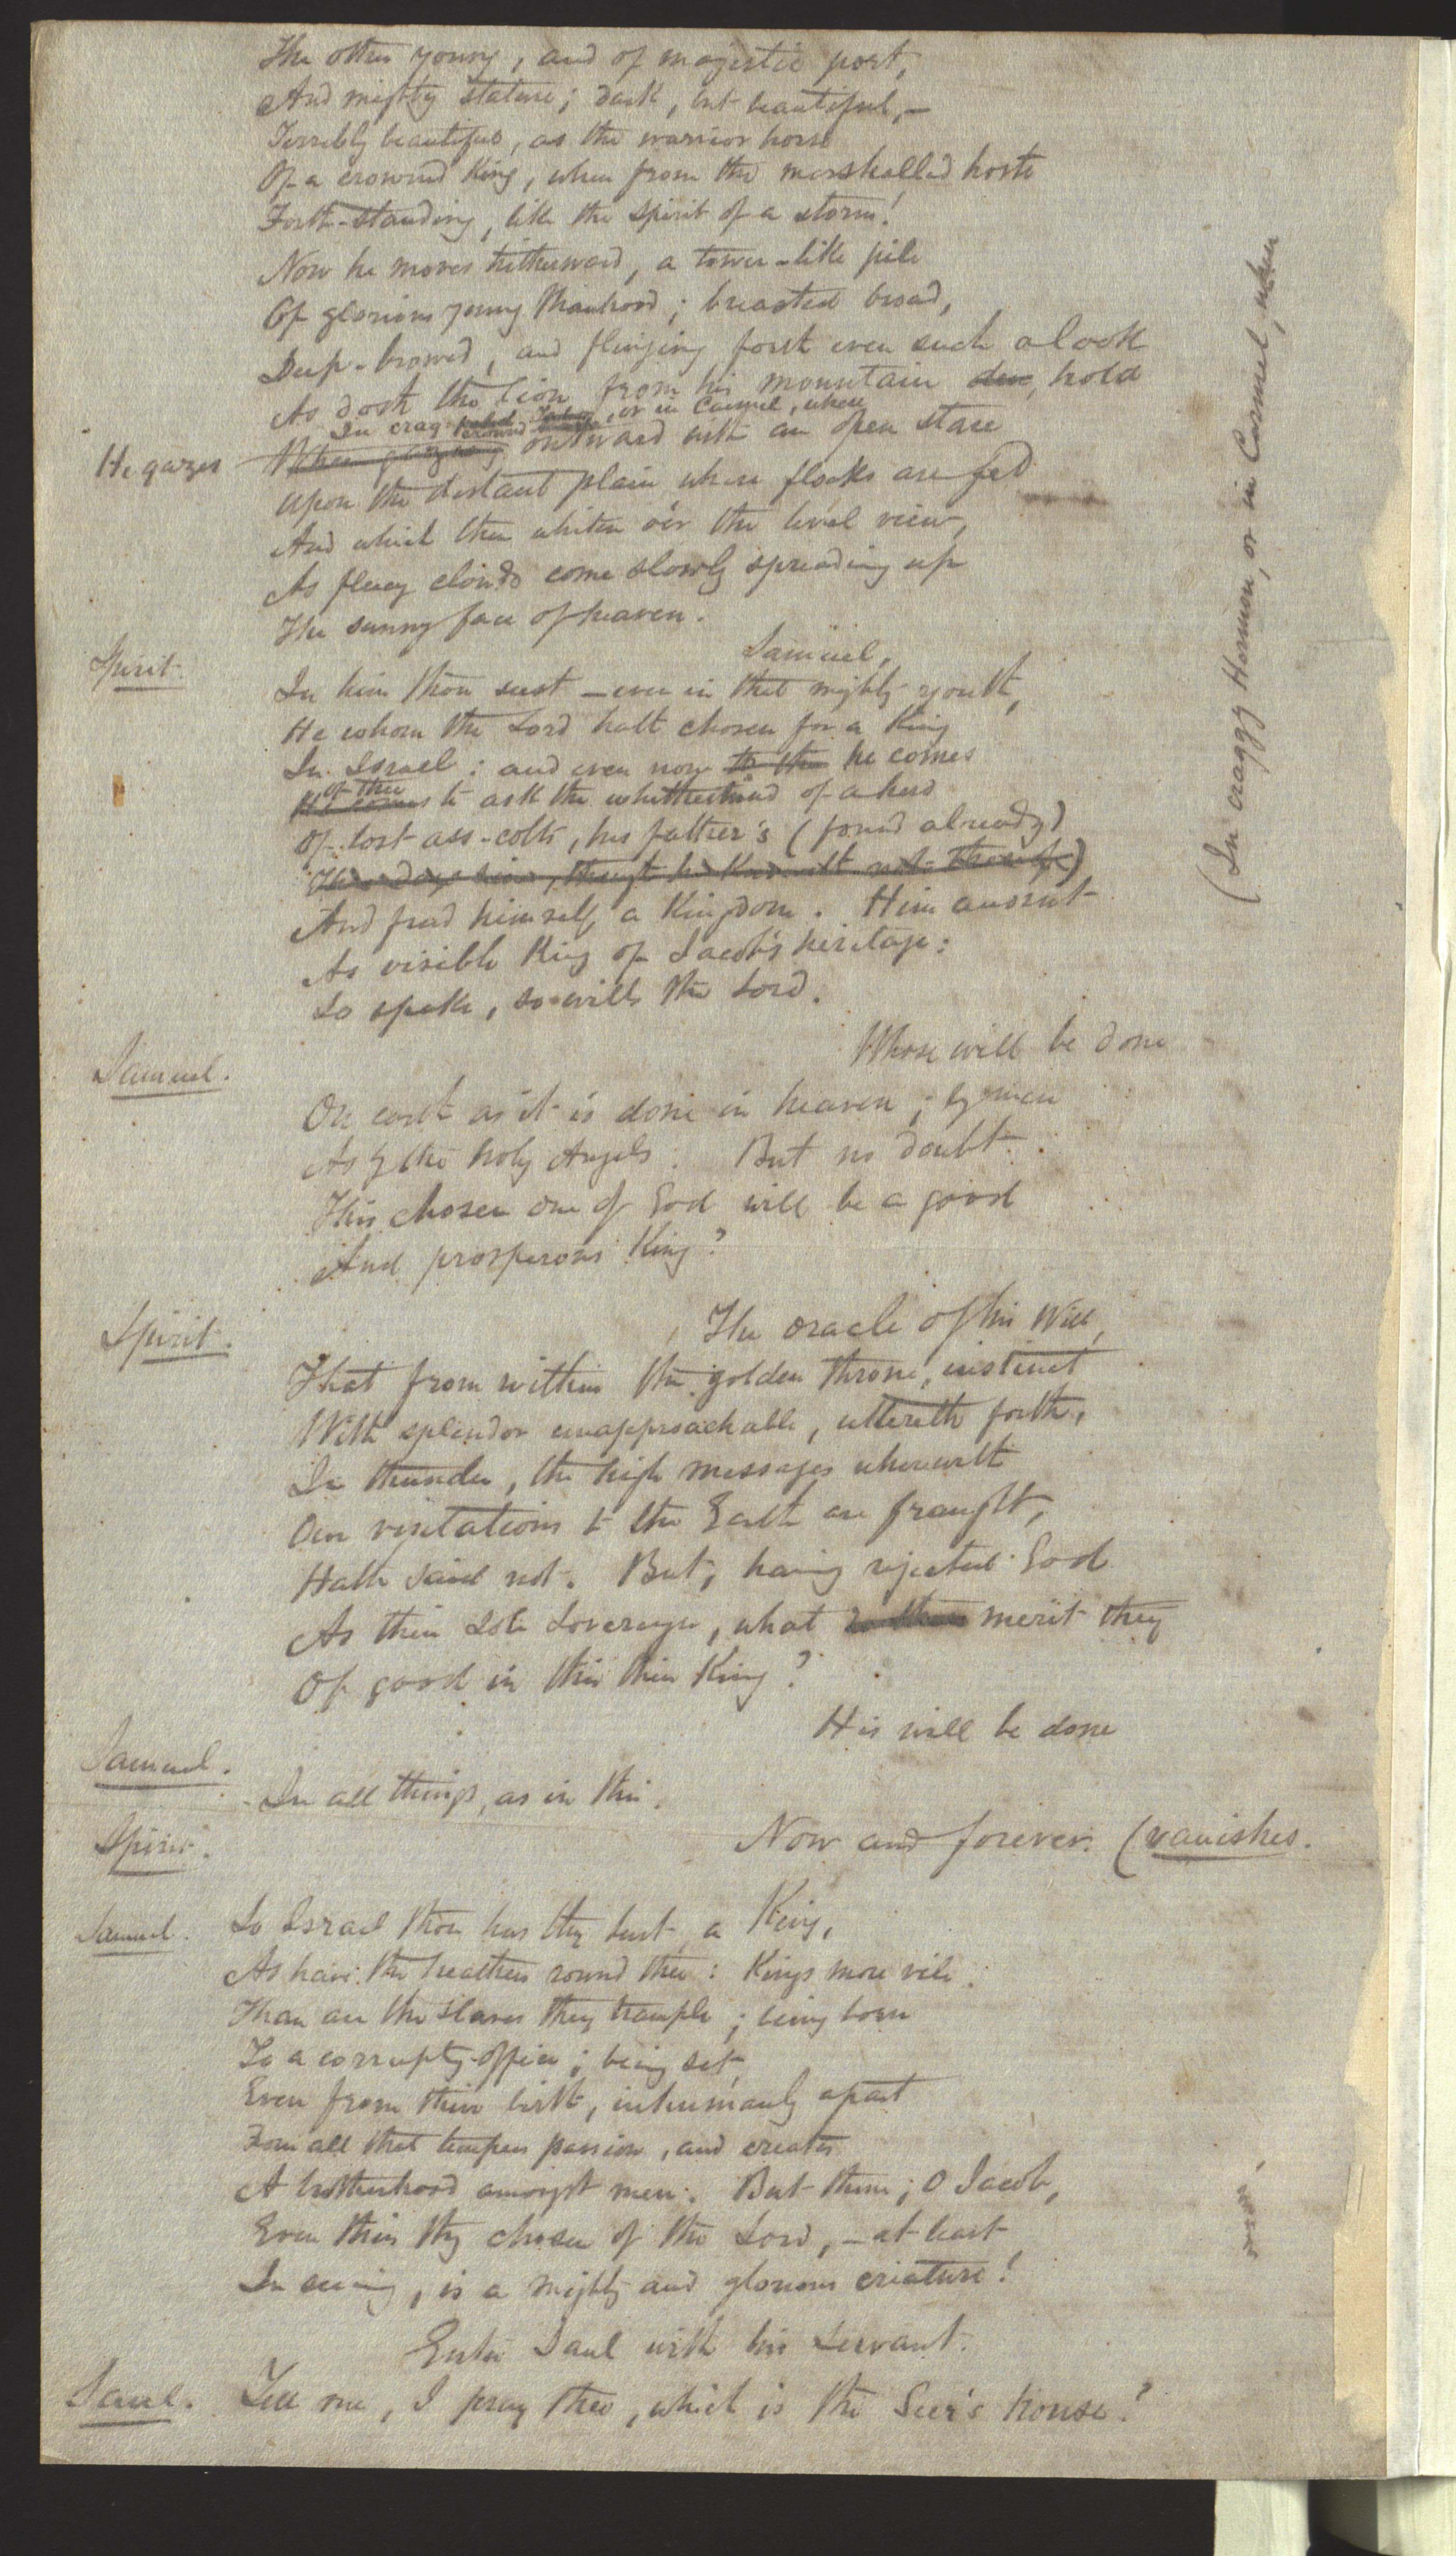 The other young, and of majestic port,
And mighty stature; dark, but beautiful,—
Terribly beautiful, as the warrior horse
Of a crowned King, when from the marshalled hosts
Forth-standing, like the spirit of a storm!
Now he moves hitherward, a tower-like pile
Of glorious young Manhood; breasted broad,
Deep-browed, and flinging forth even such a look
As doth the lion from his mountain den, hold
In crag , or in Carmel, when
He gazes When gazing outward with an open stare
Upon the distant plain where flocks are fed
And which then whiten o'er the level view,
As fleecy clouds come slowly spreading up
The sunny face of heaven.
Spirit. Samuel,
In him thou seest — even in that mighty youth,
He whom the Lord hath chosen for a King
In Israel: and even now to thee he comes
of thee
He comes to ask the whitherhood of a herd
Of lost ass-colts, his father's (found already)
Three days since, though he knoweth not thereof)
And find himself a Kingdom. Him anoint
As visible King of Jacob's heritage:
So spake, so wills the Lord.
Samuel. Whose will be done
On earth as it is done in heaven; by men
As by the holy Angels. But no doubt
This chosen one of God will be a good
And prosperous King?
Spirit. The oracle of his Will,
That from within the golden throne, instinct
With splendor unapproachable, uttereth forth,
In thunder, the high messages wherewith
Our visitations to the Earth are fraught,
Hath said not. But, having rejected God
As their sole Sovereign, what do they merit they
Of good in this their King?
Samuel. His will be done
In all things, as in this.
Spirit. Now and forever. (vanishes.
Samuel. So Israel thou has thy lust, a King,
As have the heathen round thee: Kings more vile
Than are the slaves they trample; being born
To a corrupting office; being set,
Even from their birth, inhumanly apart
From all that tempers passion, and creates
A brotherhood amongst men. But thine, O Jacob,
Even this thy chosen of the Lord,—at least
In seeing, is a mighty and glorious creature!
Enter Saul with his servant.
Saul. Tell me, I pray thee, which is the Seer's house?
(In craggy Hermon, or in Carmel, when